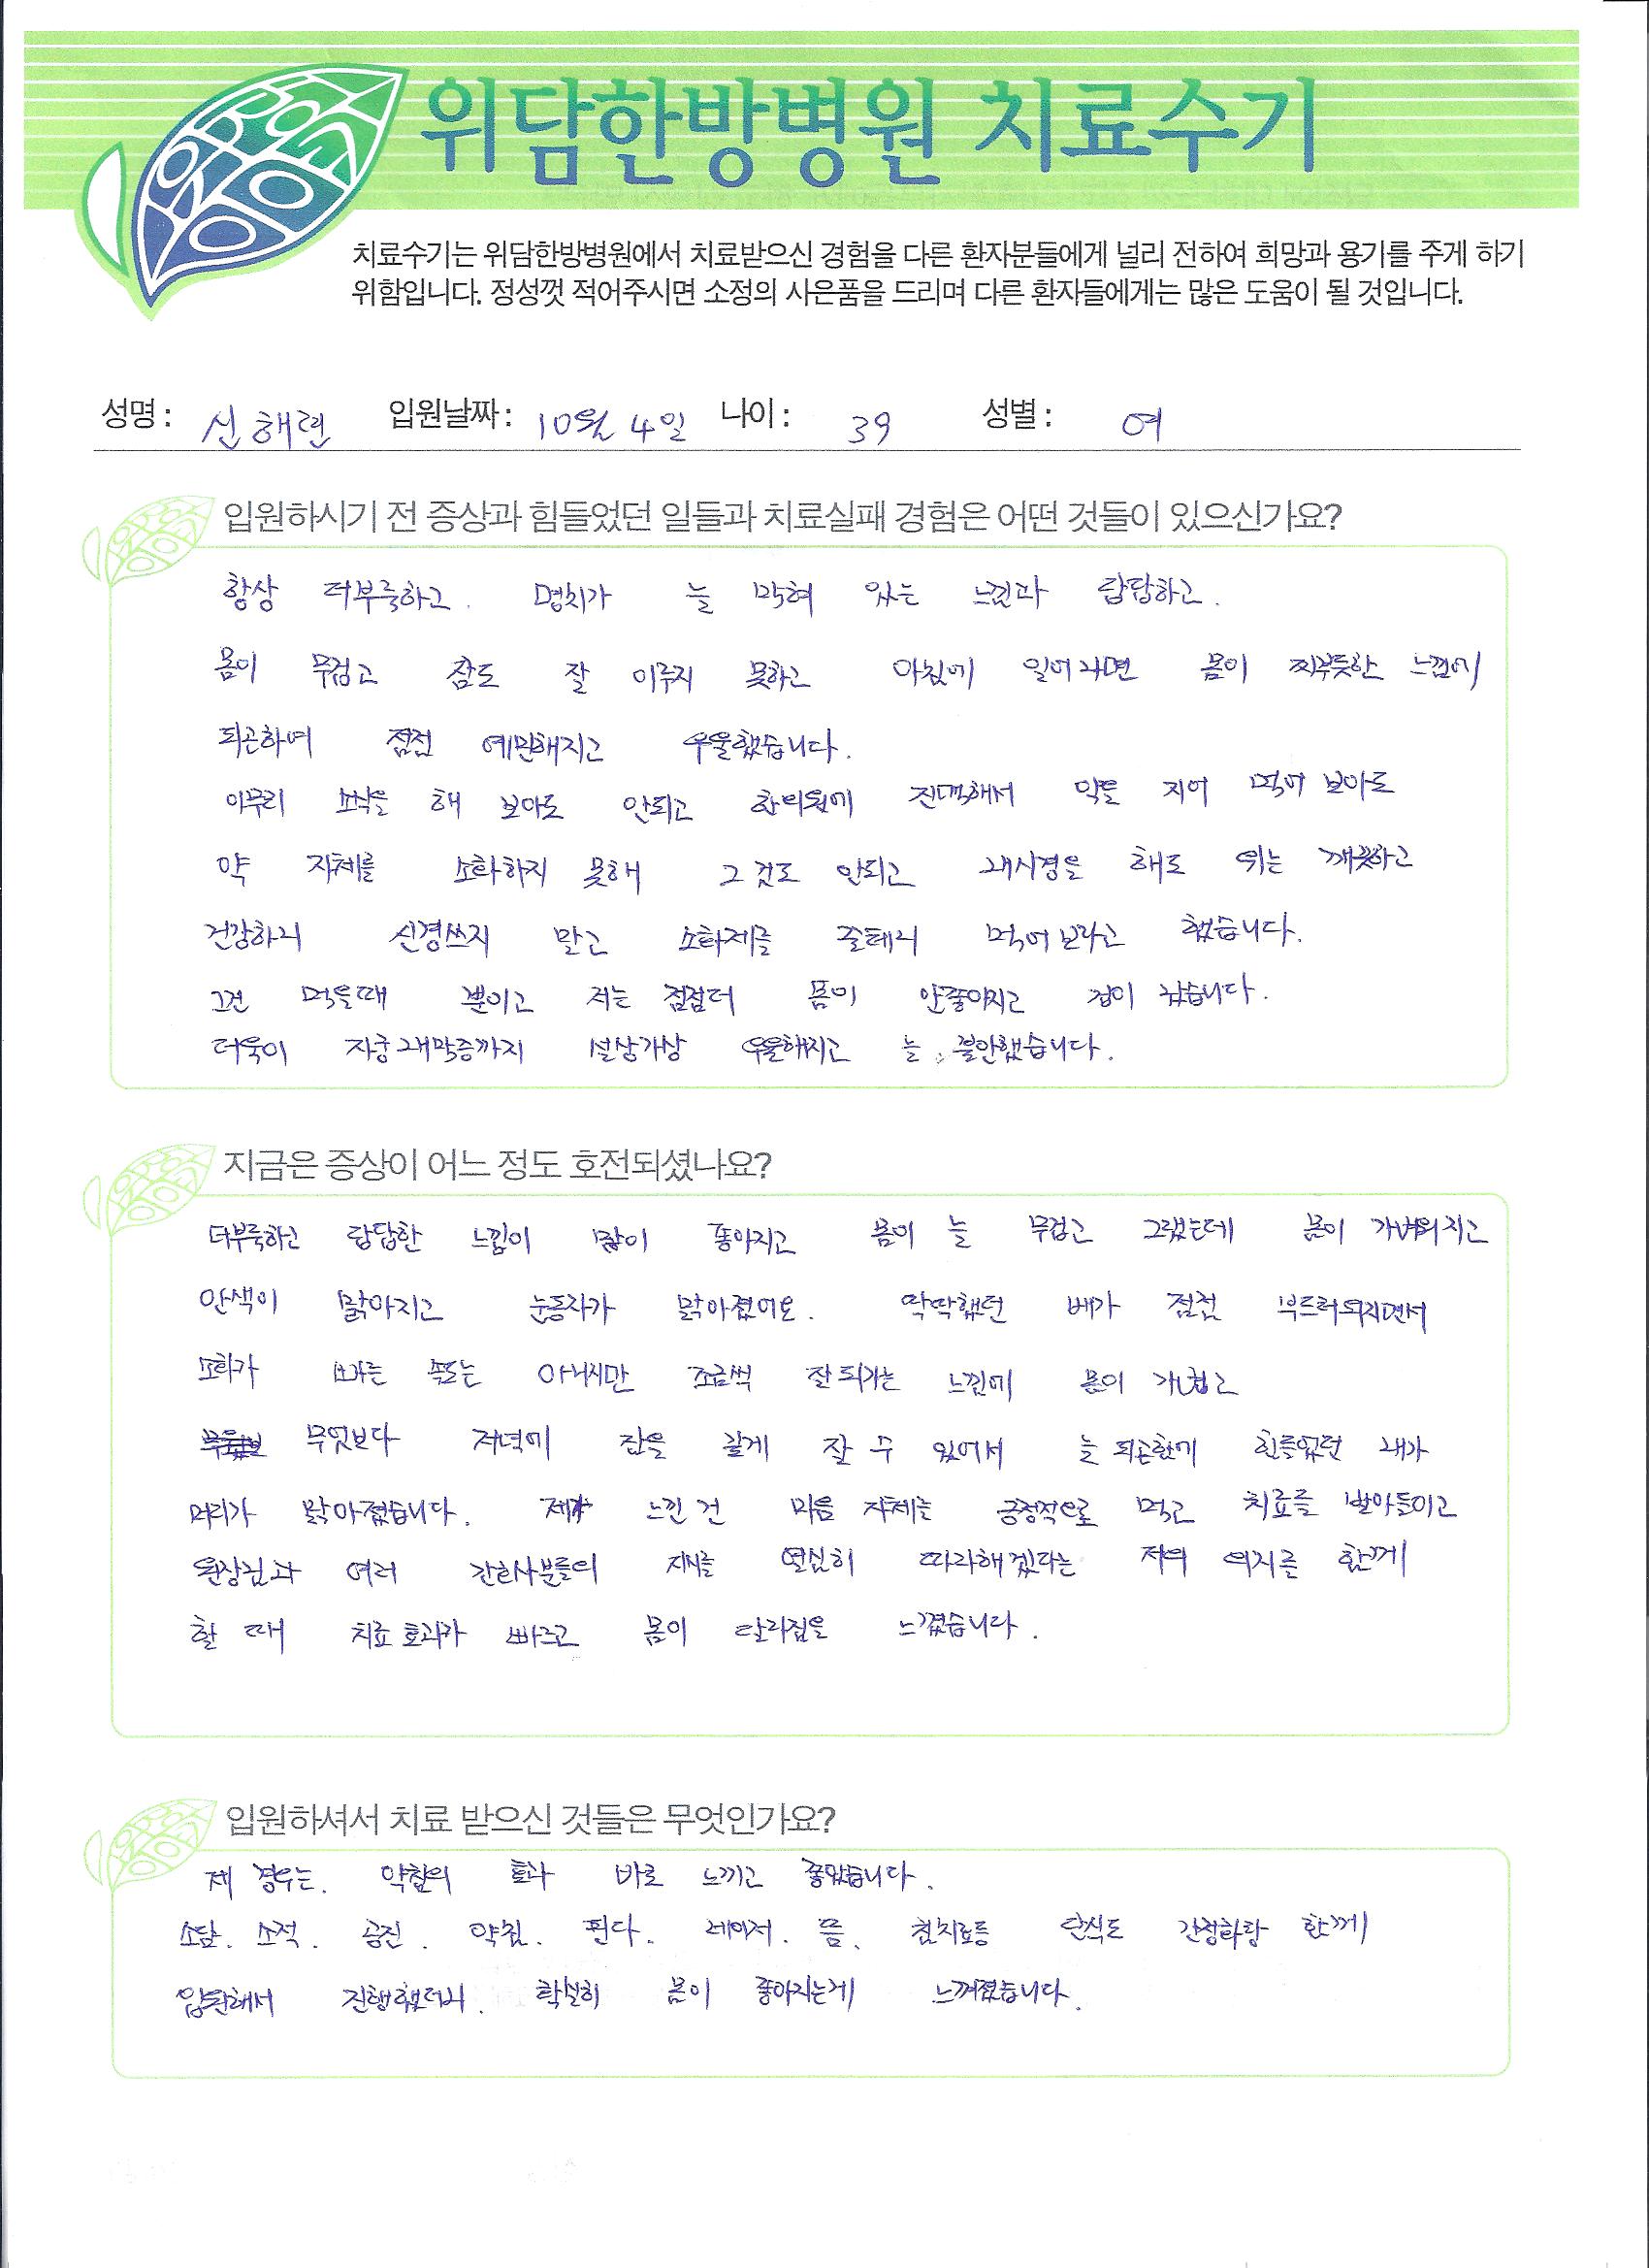 위담한방병원 치료수기
치료수기는 위담한방병원에서 치료받으신 경험을 다른 환자분들에게 널리 전하여 희망과 용기를 주게 하기
위함입니다. 정성껏 적어주시면 소정의 사은품을 드리며 다른 환자들에게는 많은 도움이 될 것입니다.
성명 : 신해련 입원날짜 : 10월 4일 나이 : 39 성별 : 여
입원하시기 전 증상과 힘들었던 일들과 치료실패 경험은 어떤 것들이 있으신가요?
항상 더부룩하고. 명치가 늘 막혀 있는 느낌과 답답하고.
몸이 무겁고 잠도 잘 이루지 못하고 아침에 일어나면 몸이 찌뿌듯한 느낌에
피곤하며 점점 예민해지고 우울했습니다.
아무리 소식을 해 보아도 안되고 한의원에 진맥해서 약을 지어 먹어 보아도
약 자체를 소화하지 못해 그것도 안되고 내시경을 해도 위는 깨끗하고
건강하니 신경쓰지 말고 소화제를 줄테니 먹어보라고 했습니다.
그건 먹을때 뿐이고 저는 점점더 몸이 안좋아지고 겁이 났습니다.
더욱이 자궁내막증까지 설상가상 우울해지고 늘 불안했습니다.
지금은 증상이 어느 정도 호전되셨나요?
더부룩하고 답답한 느낌이 많이 좋아지고 몸이 늘 무겁고 그랬는데 몸이 가벼워지고
안색이 맑아지고 눈동자가 맑아졌어요. 딱딱했던 배가 점점 부드러워지면서
소화가 빠른 속도는 아니지만 조금씩 잘되가는 느낌에 몸이 가볍고
무엇보다 저녁에 잠을 길게 잘 수 있어서 늘 피곤함에 힘들었던 내가
머리가 맑아졌습니다. 제가 느낀건 마음 자체를 긍정적으로 먹고 치료를 받아들이고
원장님과 여러 간호사분들의 지시를 열심히 따라해겠다는 저의 의지를 함께
할 때 치료 효과가 빠르고 몸이 달라짐을 느꼈습니다.
입원하셔서 치료 받으신 것들은 무엇인가요?
제 경우는. 약침의 효과 바로 느끼고 좋았습니다.
소담. 소적. 공진. 약침. 핀다. 레이저. 뜸. 침치료등 단식도 간청하랑 함께
입원해서 진행했더니. 확실히 몸이 좋아지는게 느껴졌습니다.